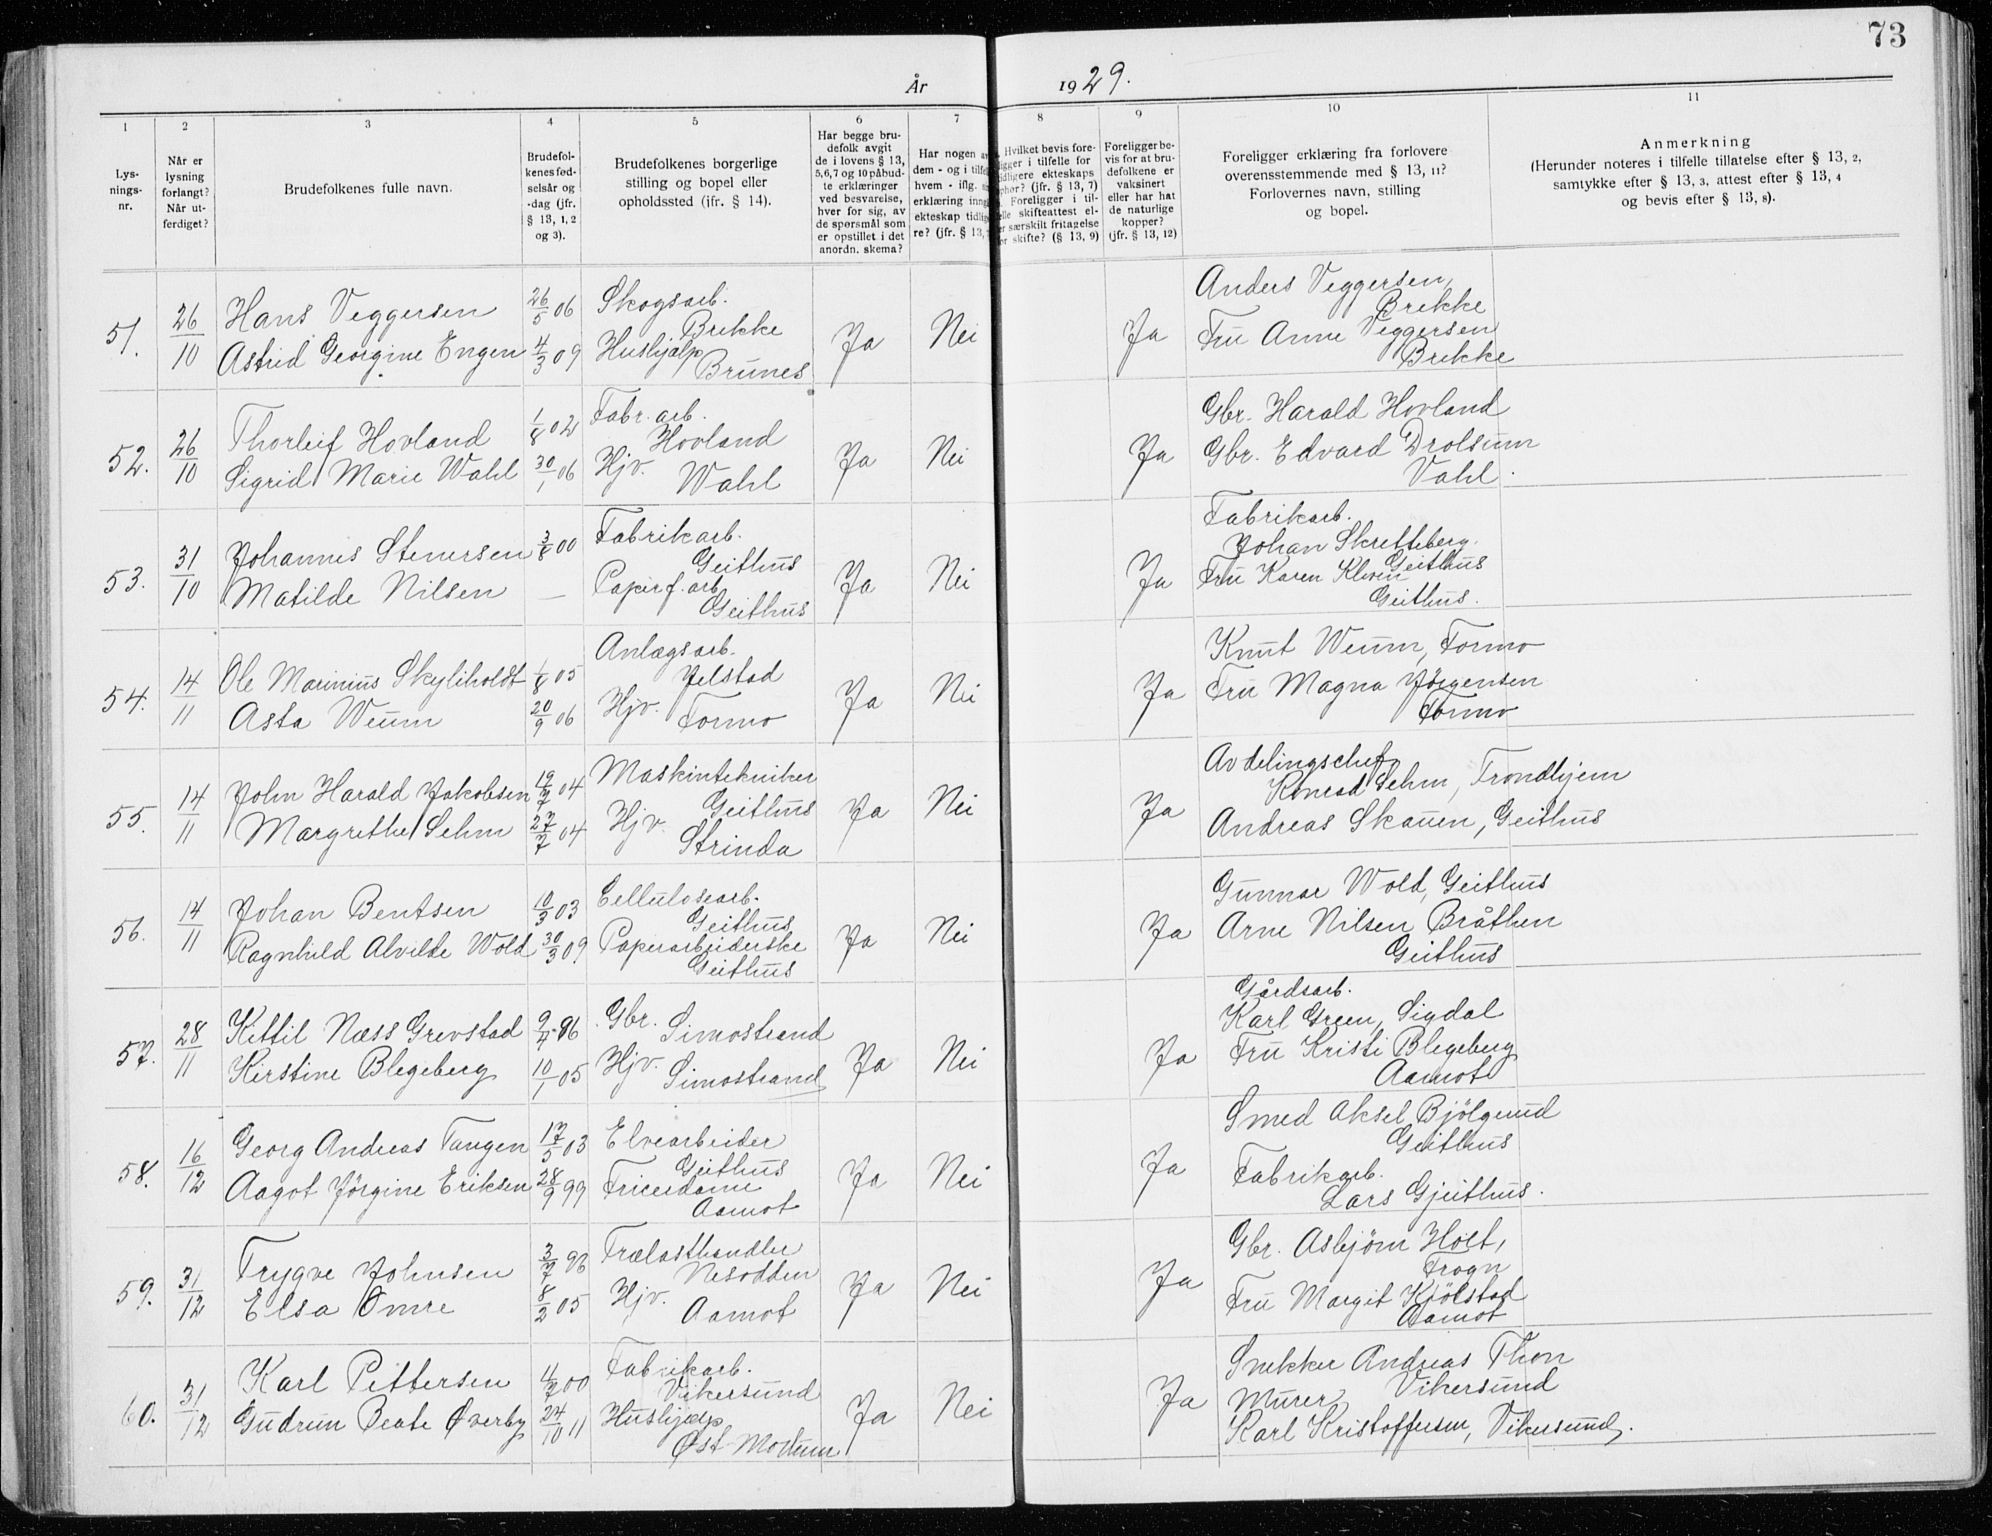 73
År 1929.
1 2 3 4 5 6 7 8 9 10 11
Lys-
nings-
nr.
Når er
lysning
forlangt?
Når ut-
ferdiget?
Brudefolkenes fulle navn.
Brudefol-
kenes fød-
selsår og
-dag (jfr.
§ 13, 1, 2
og 3).
Brudefolkenes borgerlige
stilling og bopel eller
opholdssted (ifr. § 14).
Har begge bru-
defolk avgit
de i lovens § 13,
5,6,7 og 10 påbud-
te erklæringer
ved besvarelse,
hver for sig, av
de spørsmål som
er opstillet i det
anordn. skema?
Har nogen av
dem - og i tilfel
hvem - iflg.
erklæring inng
ekteskap tidlig
re? (jfr. § 13,
Hvilket bevis fore-
ligger i tilfelle for
tidligere ekteskaps
ophør? (jfr. § 13, 7)
Foreligger i til-
felle skifteattest el-
er særskilt fritagelse
for skifte? (§ 13, 9)
Foreligger be-
vis for at bru-
defolkene er
vaksinert
eller har hat
de naturlige
kopper?
(jfr. § 13, 12)
Foreligger erklæring fra forlovere
overensstemmende med § 13, 11?
Forlovernes navn, stilling
og bopel.
Anmerkning
(Herunder noteres i tilfelle tillatelse efter § 13, 2,
samtykke efter § 13, 3, attest efter § 13, 4
og bevis efter § 13, 8).
51. 26/10 Hans Veggersen 26/5 06 Skogsarb. Brekke Ja Nei Ja Anders Veggersen,
Brekke
Astrid Georgine Engen 4/3 09 Hushjælp Brunes Fru Anne Veggersen
Brekke
52. 26/10 Thorleif Hovland 1/8 02 Fabr. arb. Hovland Ja Nei Ja Gbr. Harald Hovland
Sigrid Marie Wahl 30/1 06 Hjv. Wahl Gbr. Edvard Drolsum
Vahl.
53. 31/10 Johannes Stenersen 3/8 00 Fabrikarb. Geithus Ja Nei Ja Fabrikarb.
Johan Skretteberg. Geithus
Matilde Nilsen — Papirf. arb. Geithus Fru Karen Kleven
Geithus.
54. 14/11 Ole Marinius Skyliholdt 1/8 05 Anlægsarb. Jelstad Ja Nei Ja Knut Weum, Formo
Asta Weum 20/9 06 Hjv. Formo Fru Magna Jörgensen
Formo
55. 14/11 John Harald Jakobsen 19/7 04 Maskintekniker Geithus Ja Nei Ja Avdelingschef
Konrad Sehm, Trondhjem
Margrethe Sehm 27/7 04 Hjv. Strinda Andreas Skauen, Geithus
56. 14/11 Johan Bentsen 10/3 03 Cellulosearb. Geithus Ja Nei Ja Gunnar Wold, Geithus
Ragnhild Alvilde Wold 30/3 09. Paperarbeiderske Geithus Arne Nilsen Bråthen
Geithus
57. 28/11 Kittil Næss Grevstad 9/4 96 Gbr. Simostrand Ja Nei Ja Gårdsarb.
Karl Green, Sigdal
Kirstine Blegeberg 10/1 05 Hjv. Simostrand Fru Kristi Blegeberg
Aamot
58. 16/12 Georg Andreas Tangen 17/5 03 Elvearbeider Geithus Ja Nei Ja Smed Aksel Bjölgerud
Geithus
Aagot Jörgine Eriksen 28/9 99 Friserdame Aamot Fabrikarb.
Lars Gjeithus.
59. 31/12 Trygve Johnsen 3/7 96 Trælasthandler Nesodden Ja Nei Ja Gbr. Asbjörn Holt,
Frogn
Elsa Omre 8/2 05 Hjv. Aamot Fru Margit Kjölstad
Aamot
60. 31/12 Karl Pettersen 4/7 00 Fabrikarb. Vikersund Ja Nei Ja Snekker Andreas Thon
Vikersund
Gudrun Beate Øverby 24/10 11 Hushjælp Øst-Modum Murer
Karl Kristoffersen, Vikersund.